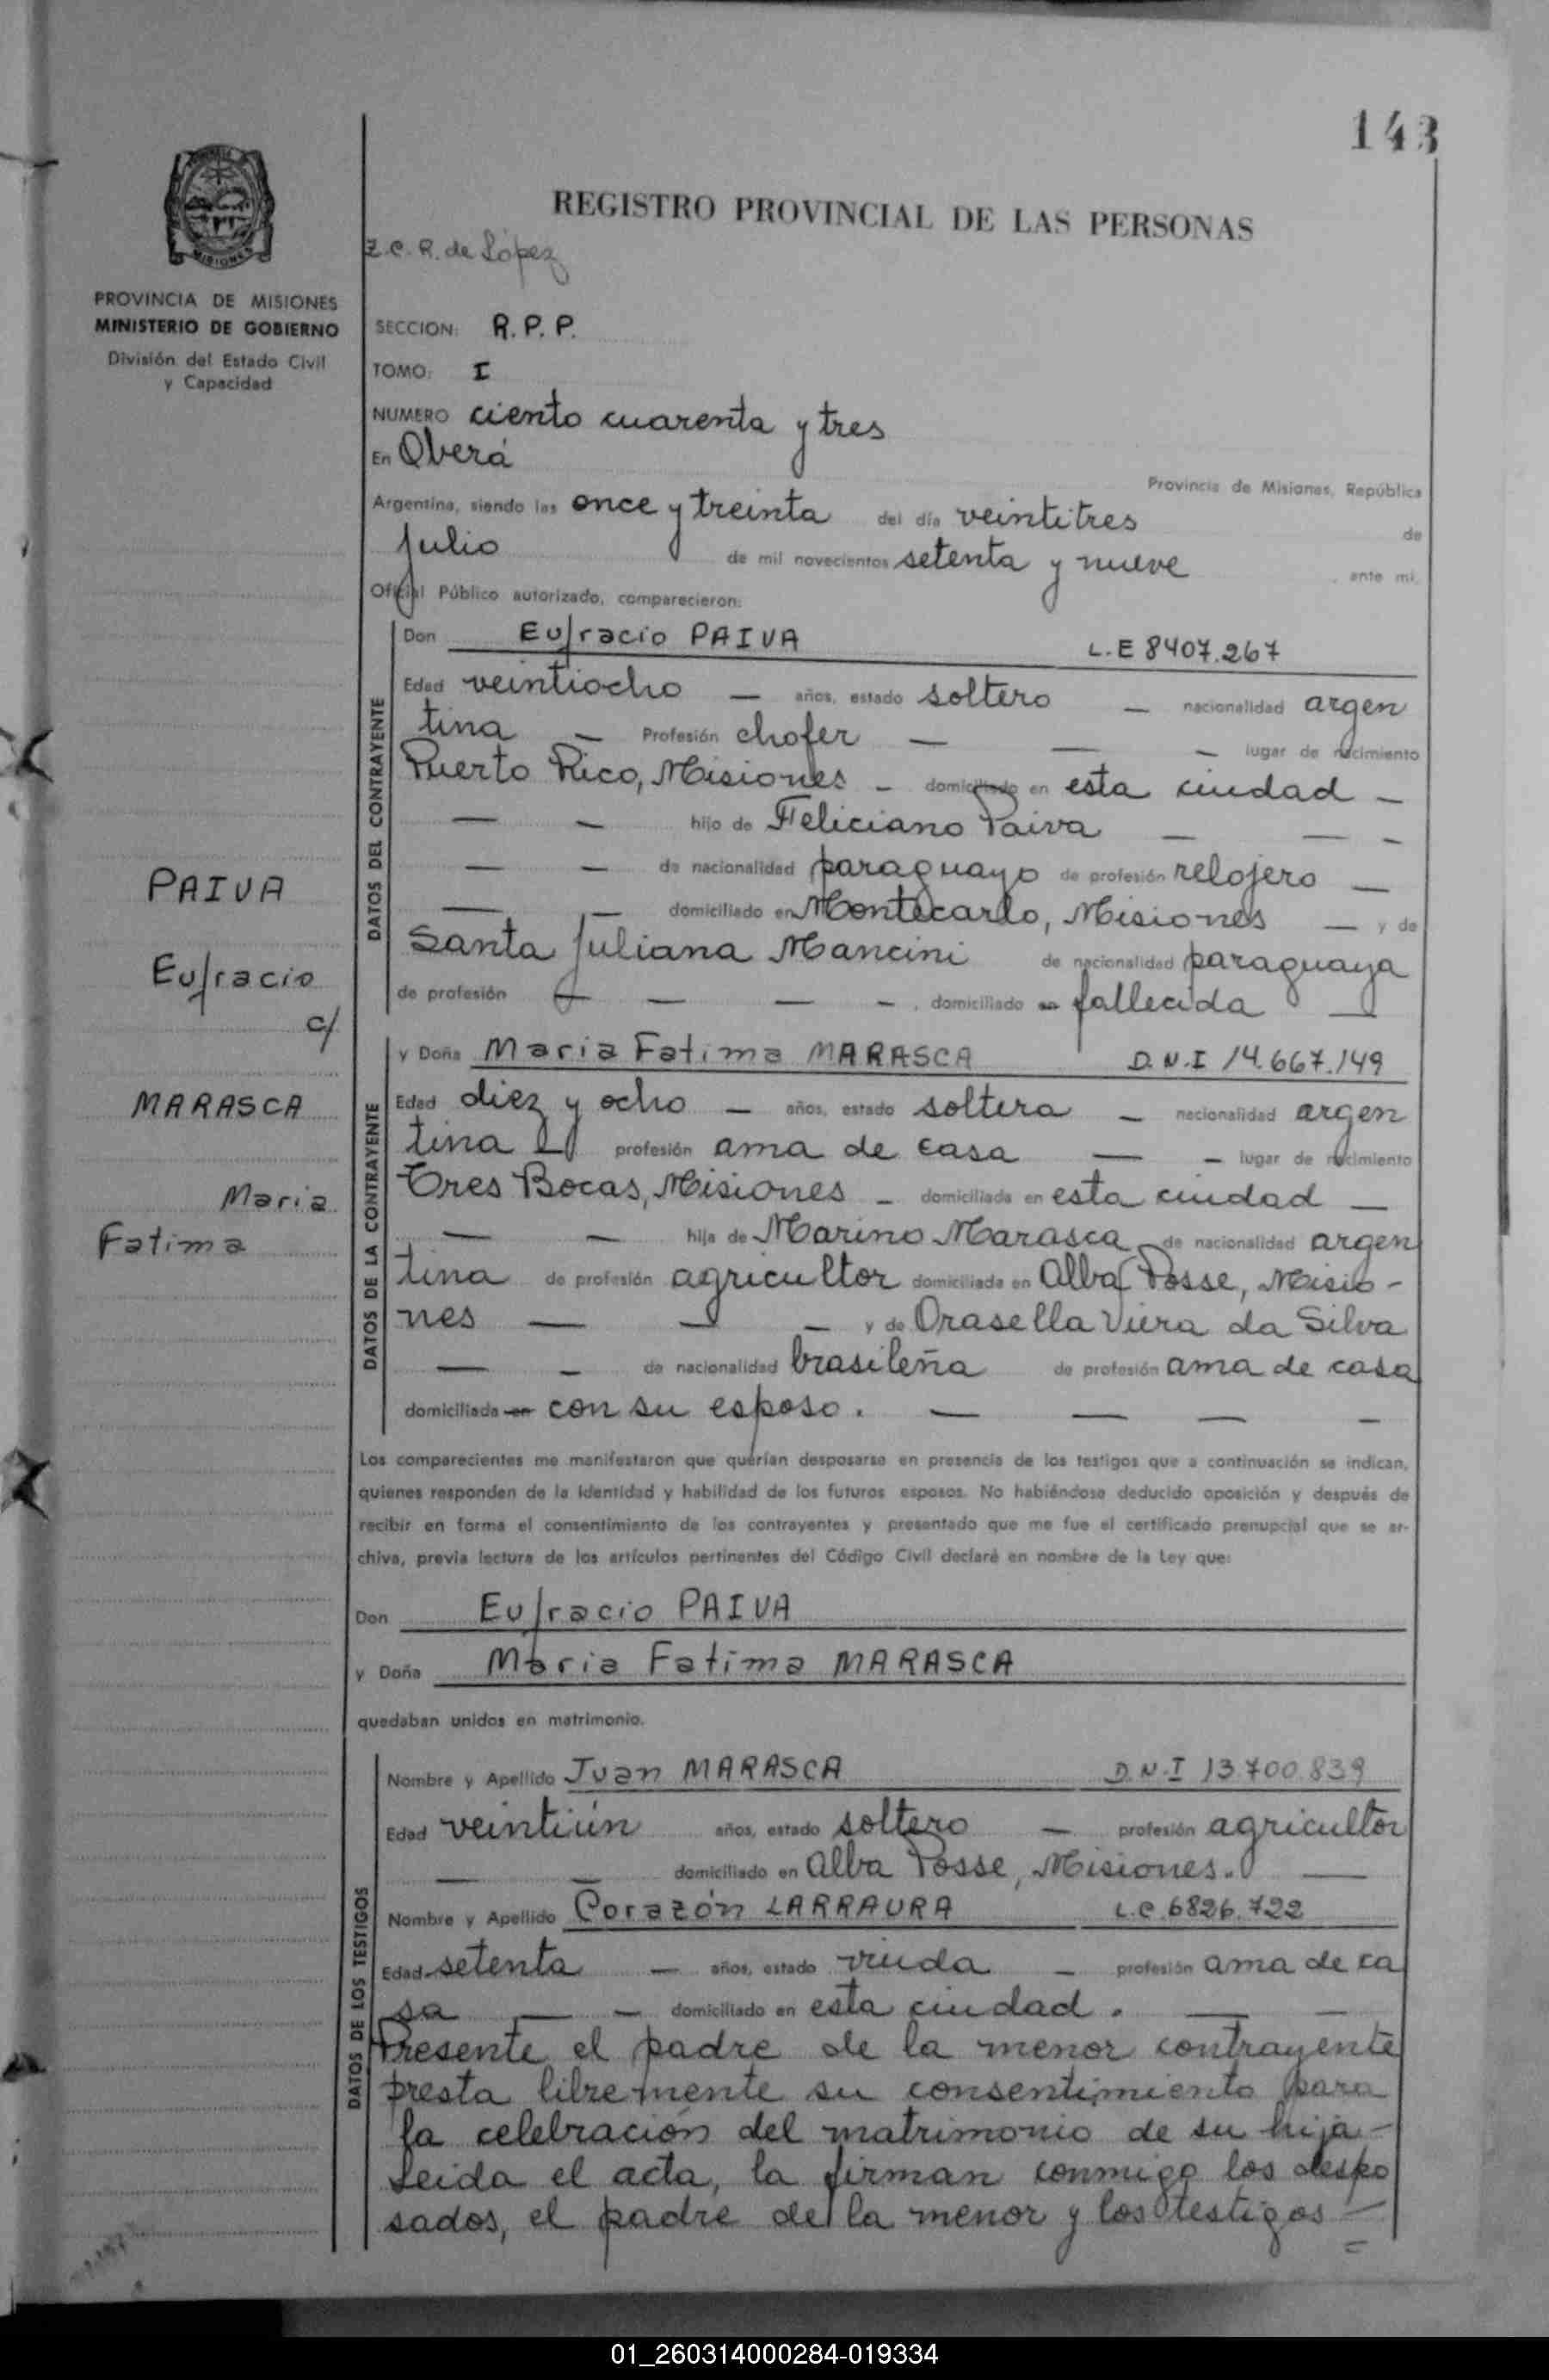 143
REGISTRO PROVINCIAL DE LAS PERSONAS
Z.C.R. de López
MISIONES
PROVINCIA DE MISIONES
MINISTERIO DE GOBIERNO
División del Estado Civil
y Capacidad
SECCION: R.P.P.
TOMO: I
NUMERO ciento cuarenta y tres
En Oberá
Provincia de Misiones, República
Argentina, siendo las once y treinta del día veintitres de
julio de mil novecientos setenta y nueve, ante mi,
Oficial Público autorizado, comparecieron:
DATOS DEL CONTRAYENTE
Don Eufracio PAIVA L.E 8407.267
Edad veintiocho — años, estado soltero — nacionalidad argen
tina — Profesión chofer — — — lugar de nacimiento
Puerto Rico, Misiones — domiciliado en esta ciudad —
— — hijo de Feliciano Paiva — — —
— — de nacionalidad paraguayo de profesión relojero —
— — domiciliado en Montecarlo, Misiones — y de
Santa Juliana Mancini de nacionalidad paraguaya
de profesión — — — —, domiciliado en fallecida —
PAIVA
Eufracio
c/
MARASCA
Maria
Fatima
DATOS DE LA CONTRAYENTE
y Doña Maria Fatima MARASCA D.N.I 14.667.149
Edad diez y ocho — años, estado soltera — nacionalidad argen
tina — profesión ama de casa — — lugar de nacimiento
Tres Bocas, Misiones — domiciliada en esta ciudad —
— — hija de Marino Marasca de nacionalidad argen
tina de profesión agricultor domiciliada en Alba Posse, Misio-
nes — — — y de Orasella Viera da Silva
— — de nacionalidad brasileña de profesión ama de casa
domiciliada en con su esposo. — — — —
Los comparecientes me manifestaron que querían desposarse en presencia de los testigos que a continuación se indican,
quienes responden de la identidad y habilidad de los futuros esposos. No habiéndose deducido oposición y después de
recibir en forma el consentimiento de los contrayentes y presentado que me fue el certificado prenupcial que se ar-
chiva, previa lectura de los artículos pertinentes del Código Civil declaré en nombre de la Ley que:
Don Eufracio PAIVA
y Doña Maria Fatima MARASCA
quedaban unidos en matrimonio.
DATOS DE LOS TESTIGOS
Nombre y Apellido Juan MARASCA D.N.I 13.700.839
Edad veintiún años, estado soltero — profesión agricultor
— — domiciliado en Alba Posse, Misiones. —
Nombre y Apellido Corazón LARRAURA L.C. 6826.722
Edad setenta — años, estado viuda — profesión ama de ca
sa — — domiciliado en esta ciudad. — —
Presente el padre de la menor contrayente
presta libremente su consentimiento para
la celebración del matrimonio de su hija —
Leida el acta, la firman conmigo los despo
sados, el padre de la menor y los testigos —
01_260314000284-019334